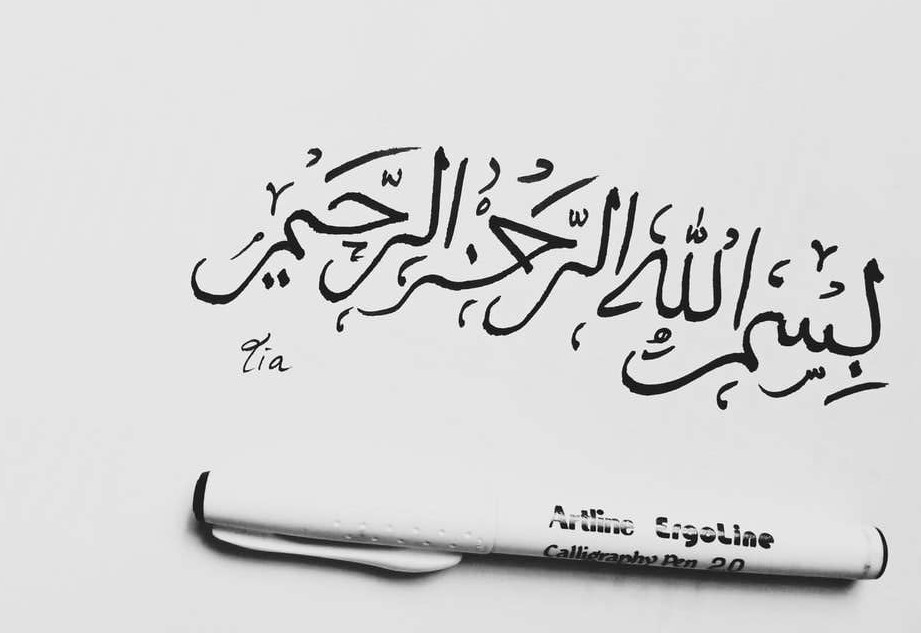 بِسْمِ اللهِ الرَّحْمٰنِ الرَّحِيْمِ
Tia
Artline ErgoLine
Calligraphy Pen 2.0